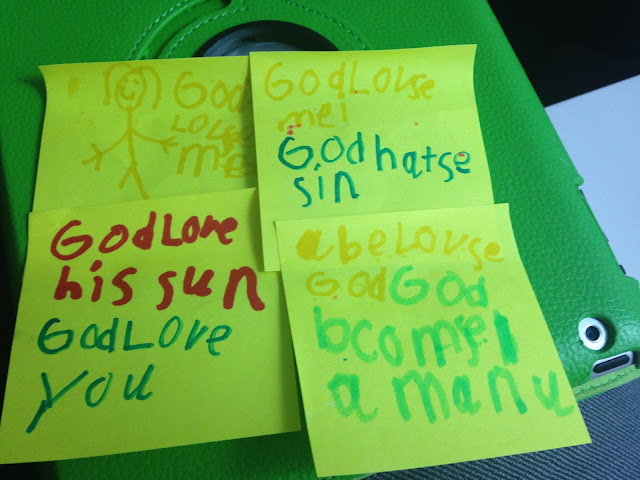 God
Lovse
me
GodLovse
me!
Godhatse
sin
GodLove
his sun
GodLove
you
abelovse
GodGod
bcomse
a manu